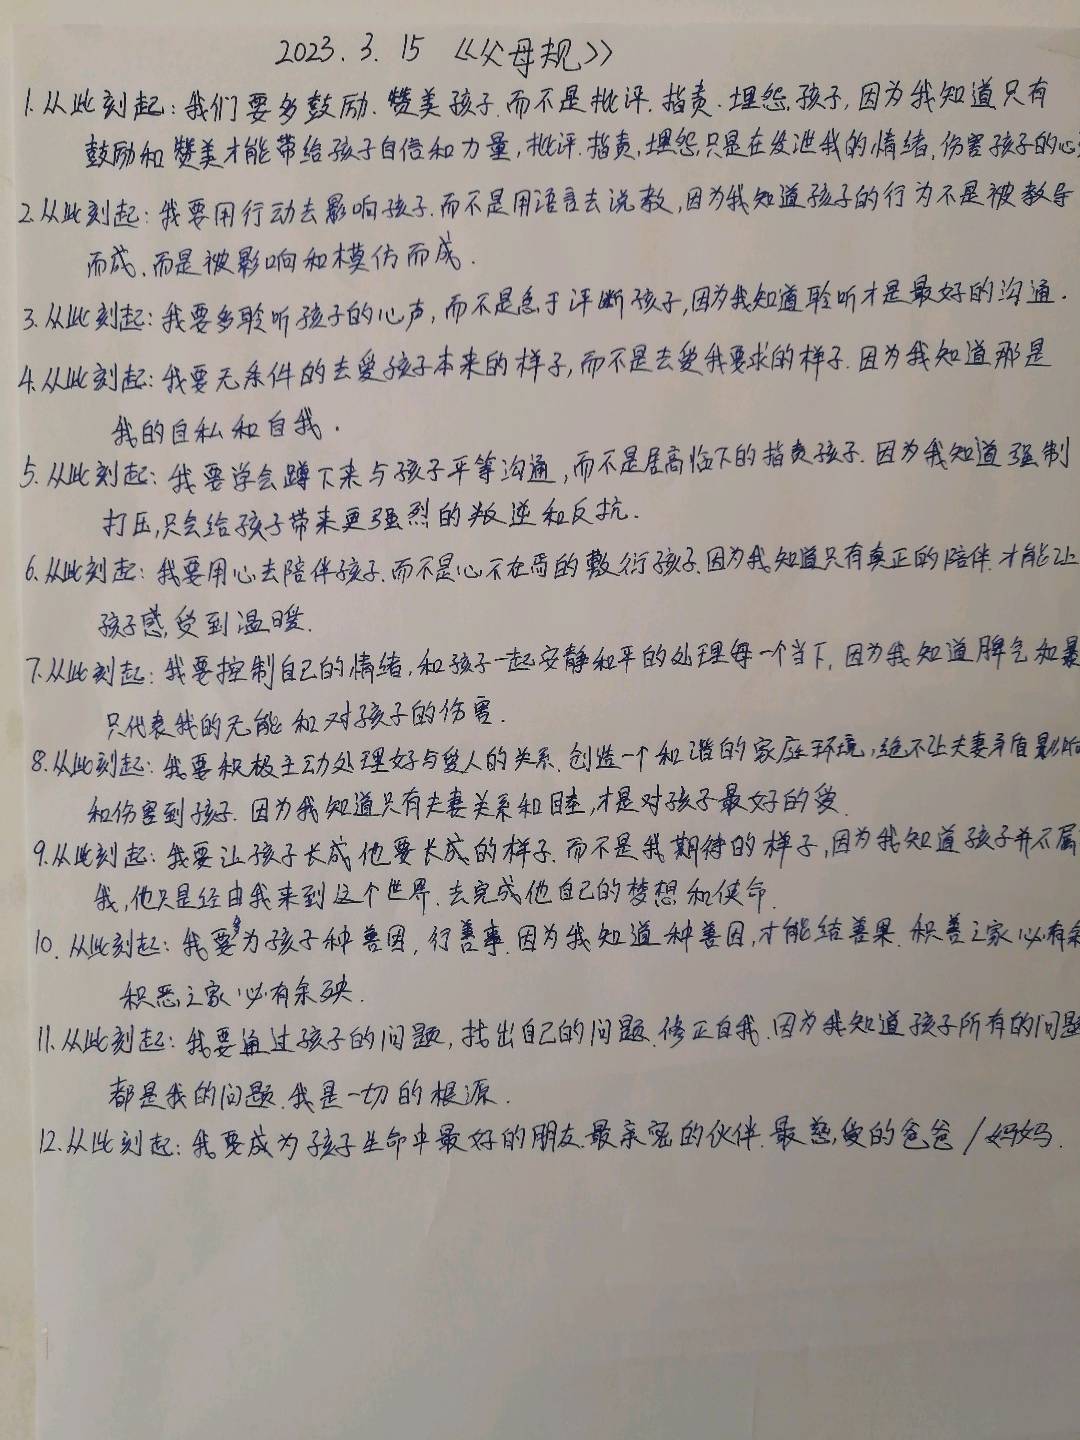 2023.3.15 《父母规》
1.从此刻起:我们要多鼓励.赞美孩子.而不是批评.指责.埋怨.孩子,因为我知道只有
鼓励和赞美才能带给孩子自信和力量,批评.指责,埋怨,只是在发泄我的情绪,伤害孩子的心
2.从此刻起:我要用行动去影响孩子.而不是用语言去说教,因为我知道孩子的行为不是被教导
而成、而是被影响和模仿而成.
3.从此刻起:我要多聆听孩子的心声,而不是急于评断孩子,因为我知道聆听才是最好的沟通.
4.从此刻起:我要无条件的去爱孩子本来的样子,而不是去爱我要求的样子.因为我知道那是
我的自私和自我.
5.从此刻起:我要学会蹲下来与孩子平等沟通,而不是居高临下的指责孩子.因为我知道强制
打压,只会给孩子带来更强烈的叛逆和反抗.
6.从此刻起:我要用心去陪伴孩子.而不是心不在焉的敷衍孩子.因为我知道只有真正的陪伴.才能让
孩子感受到温暖.
7.从此刻起:我要控制自己的情绪,和孩子一起安静和平的处理每一个当下,因为我知道脾气和暴
只代表我的无能和对孩子的伤害.
8.从此刻起:我要积极主动处理好与爱人的关系.创造一个和谐的家庭环境,绝不让夫妻矛盾影响
和伤害到孩子.因为我知道只有夫妻关系和睦,才是对孩子最好的爱.
9.从此刻起:我要让孩子长成他要长成的样子.而不是我期待的样子,因为我知道孩子并不属
我,他只是经由我来到这个世界.去完成他自己的梦想和使命.
10.从此刻起:我要多为孩子种善因,行善事.因为我知道种善因,才能结善果.积善之家必有余
积恶之家必有余殃.
11.从此刻起:我要通过孩子的问题,找出自己的问题.修正自我.因为我知道孩子所有的问题
都是我的问题.我是一切的根源.
12.从此刻起:我要成为孩子生命中最好的朋友.最亲密的伙伴.最慈爱的爸爸/妈妈.